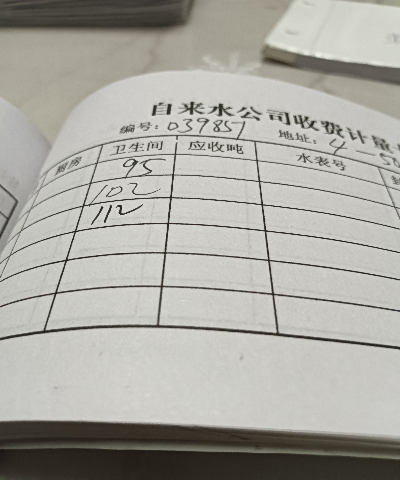 自来水公司收费计量
编号: 039857 地址: 4-50
厨房 卫生间 应收吨 水表号
95
102
112